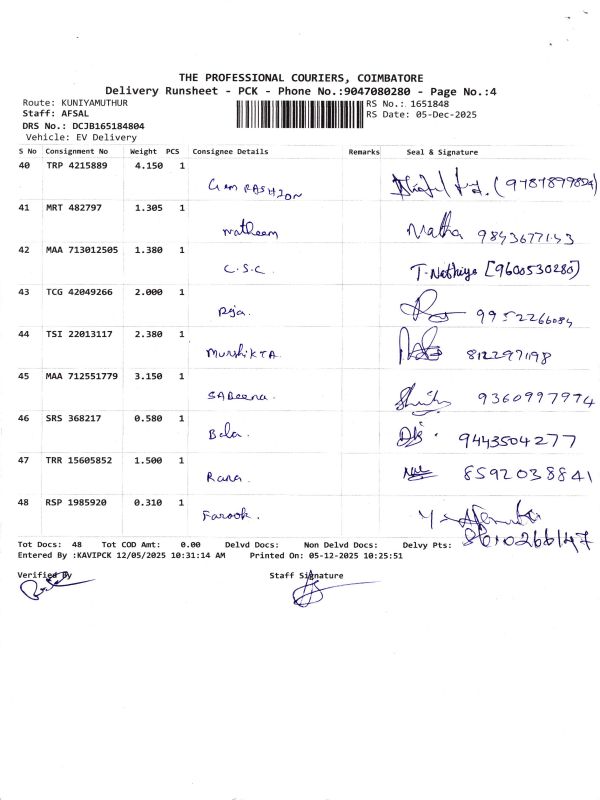 THE PROFESSIONAL COURIERS, COIMBATORE
Delivery Runsheet - PCK - Phone No.:9047080280 - Page No.:4
Route: KUNIYAMUTHUR RS No.: 1651848
Staff: AFSAL RS Date: 05-Dec-2025
DRS No.: DCJB165184804
Vehicle: EV Delivery
S No Consignment No Weight PCS Consignee Details Remarks Seal & Signature
40 TRP 4215889 4.150 1
41 MRT 482797 1.305 1
Natheem Natha 9843677153
42 MAA 713012505 1.380 1
C.S.C. T. Nothiya [9600530280]
43 TCG 42049266 2.000 1
Roja. 9952266084
44 TSI 22013117 2.380 1
MURSHIKTA. 8122971198
45 MAA 712551779 3.150 1
SABeena. 9360997974
46 SRS 368217 0.580 1
Bala. 9443504277
47 TRR 15605852 1.500 1
Rana. 8592038841
48 RSP 1985920 0.310 1
Farook.
Tot Docs: 48 Tot COD Amt: 0.00 Delvd Docs: Non Delvd Docs: Delvy Pts: 8610266147
Entered By :KAVIPCK 12/05/2025 10:31:14 AM Printed On: 05-12-2025 10:25:51
Verified By Staff Signature